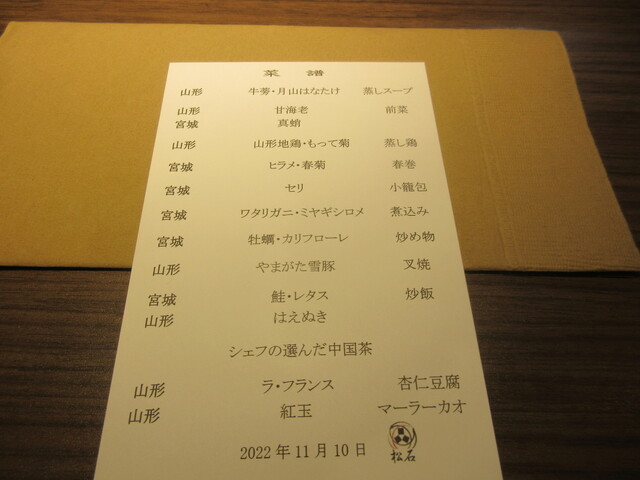 菜 譜
山形 牛蒡・月山はなたけ 蒸しスープ
山形 甘海老 前菜
宮城 真蛸
山形 山形地鶏・もって菊 蒸し鶏
宮城 ヒラメ・春菊 春巻
宮城 セリ 小籠包
宮城 ワタリガニ・ミヤギシロメ 煮込み
宮城 牡蠣・カリフローレ 炒め物
山形 やまがた雪豚 叉焼
宮城 鮭・レタス 炒飯
山形 はえぬき
シェフの選んだ中国茶
山形 ラ・フランス 杏仁豆腐
山形 紅玉 マーラーカオ
2022年11月10日 松石